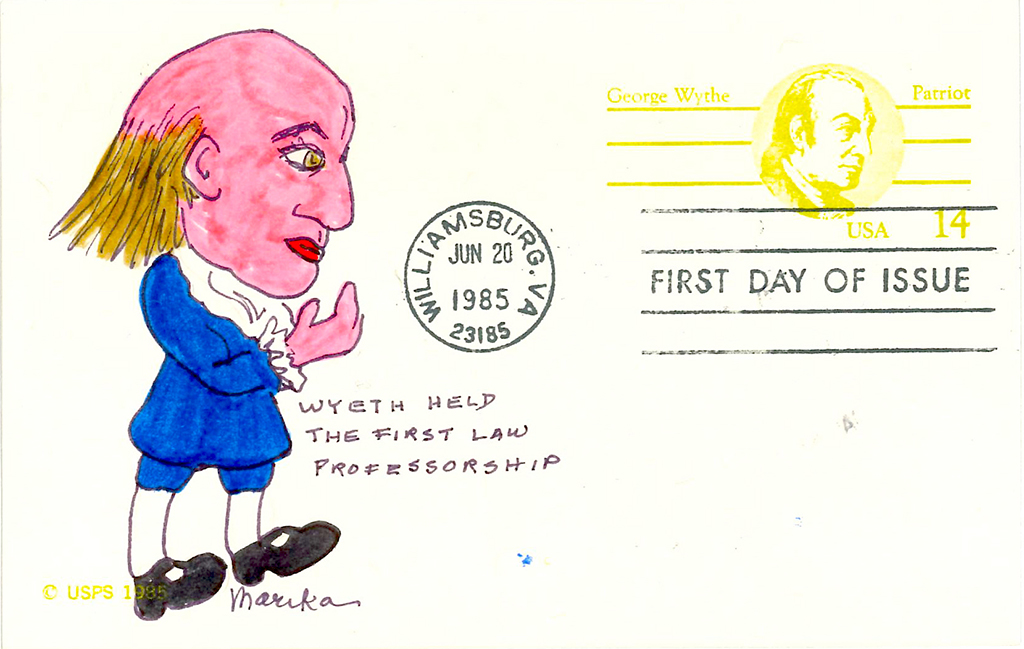 George Wythe
Patriot
USA 14
WILLIAMSBURG. VA
JUN 20
1985
23185
FIRST DAY OF ISSUE
WYETH HELD
THE FIRST LAW
PROFESSORSHIP
© USPS 1985
Marika